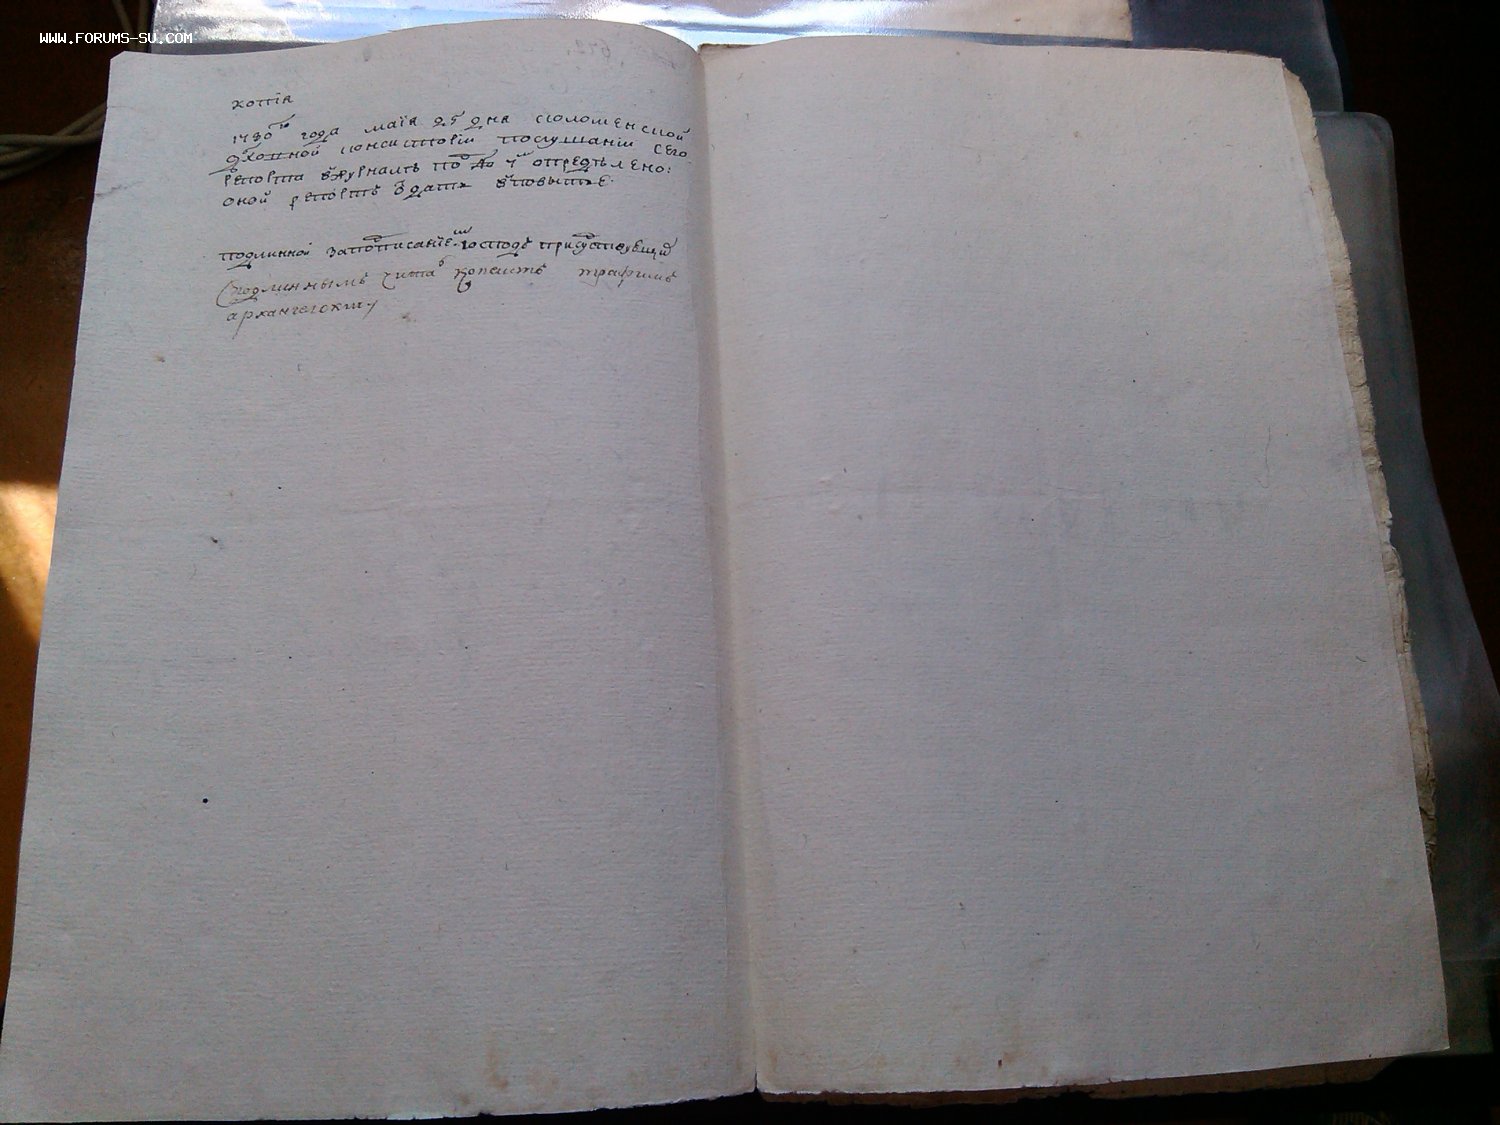 WWW.FORUMS-SU.COM
копія
1780 го года маїя 25 дня
духовной консисторїи по слушанїи сего
репорта в журналѣ под № опредѣлено:
оной репортъ здать в повытье.
подлинной за подписанїемъ господъ присудствующих
С подлиннымъ читалъ копеистъ трафимъ
архангелский